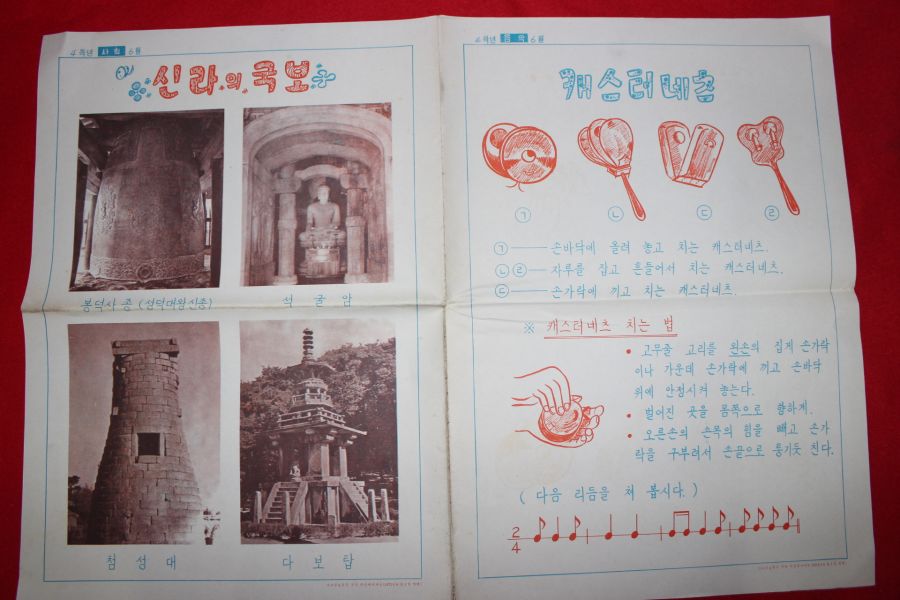 4학년 사회 6월
신라의 국보
봉덕사 종 (성덕대왕신종)
석굴암
첨성대
다보탑
4학년 음악 6월
캐스터네츠
㉠ ㉡ ㉢ ㉣
㉠ 손바닥에 올려 놓고 치는 캐스터네츠.
㉡㉣ 자루를 잡고 흔들어서 치는 캐스터네츠.
㉢ 손가락에 끼고 치는 캐스터네츠.
※ 캐스터네츠 치는 법
• 고무줄 고리를 왼손의 집게 손가락
이나 가운데 손가락에 끼고 손바닥
위에 안정시켜 놓는다.
• 벌어진 곳을 몸쪽으로 향하게.
• 오른손의 손목의 힘을 빼고 손가
락을 구부려서 손끝으로 퉁기듯 친다.
(다음 리듬을 쳐 봅시다.)
2
4